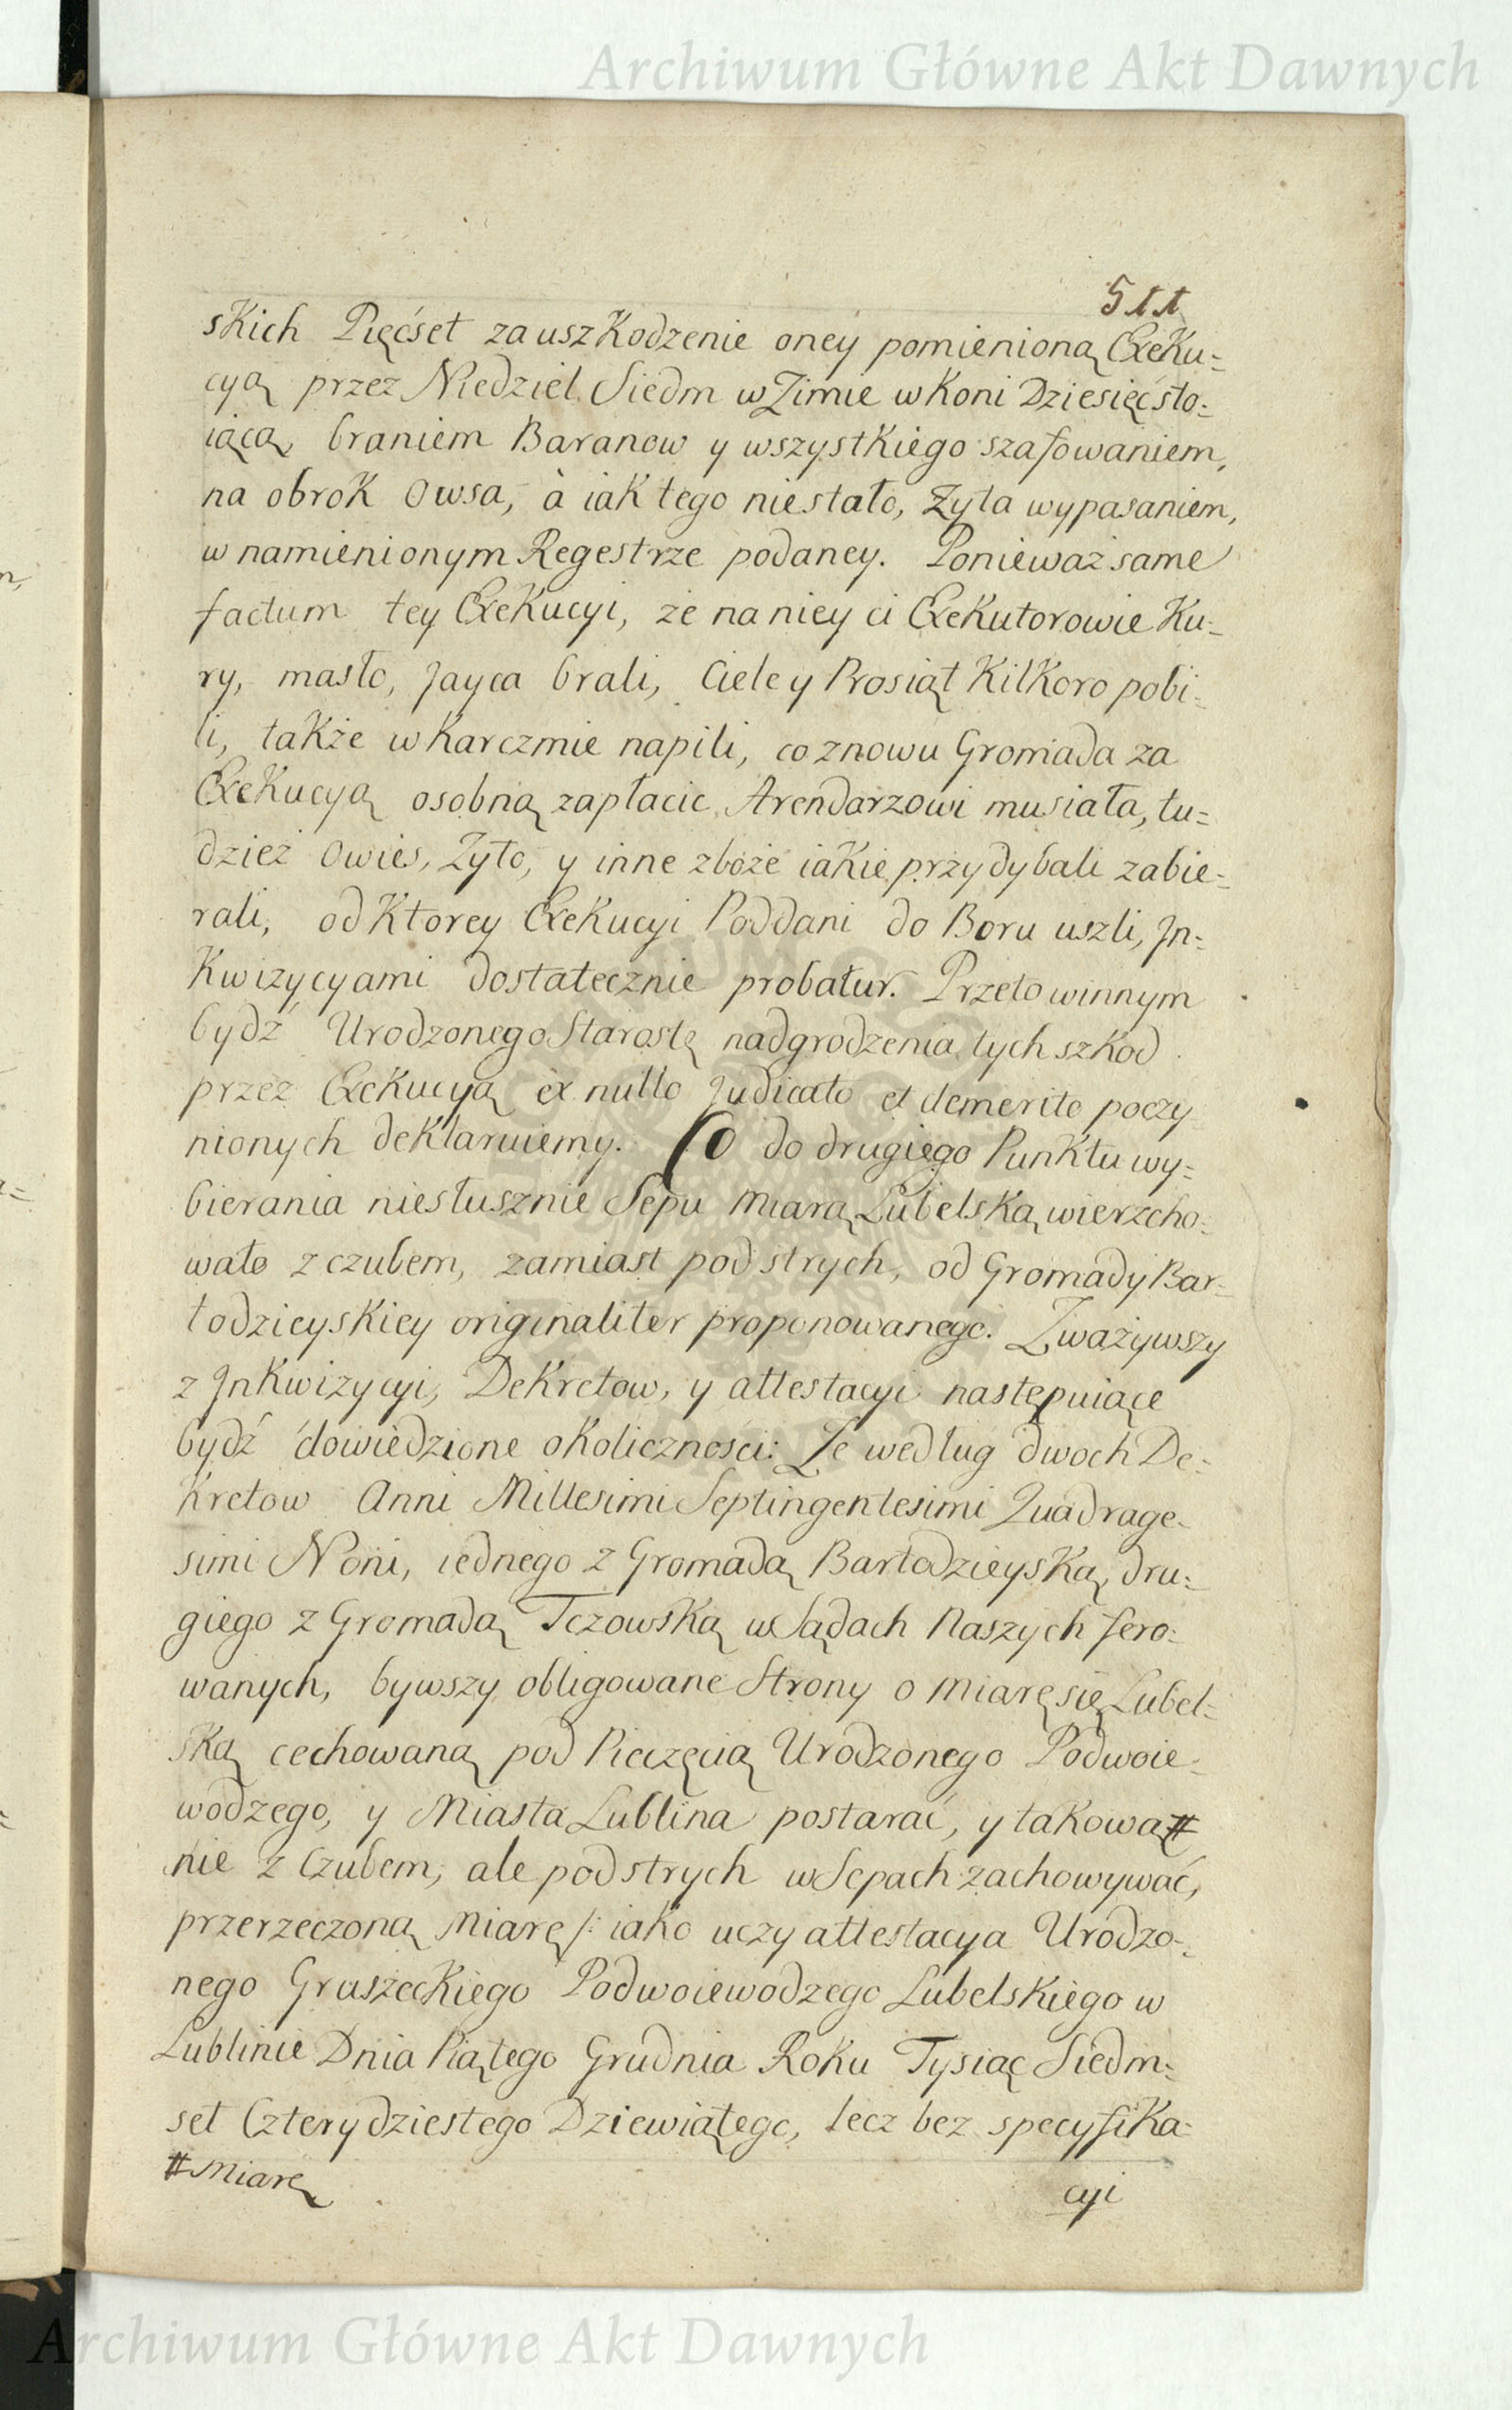 Archiwum Główne Akt Dawnych
511
skich Pięćset za uszkodzenie oney pomienioną Exeku=
cyą przez Niedziel Siedm w Zimie w Koni Dziesięć sto=
iącą, braniem Baranow y wszystkiego szafowaniem,
na obrok Owsa, à iak tego niestało, Zyta wypasaniem,
w namienionym Regestrze podaney. Ponieważ same
factum tey Exekucyi, że na niey ci Exekutorowie Ku=
ry, masło, Jayca brali, Ciele y Prosiąt Kilkoro pobi=
li, także w Karczmie napili, co znowu Gromada za
Exekucyą osobną zapłacic Arendarzowi musiała, tu=
dzież Owies, Zyto, y inne zboże iakie przydybali zabie=
rali, od Ktorey Exekucyi Poddani do Boru uszli, Jn=
Kwizycyami dostatecznie probatur. Przeto winnym
bydź Urodzonego Starostę nadgrodzenia tych szkod
przez Exekucyą ex nullo Judicato et demerito poczy
nionych deklaruiemy. Co do drugiego Punktu wy=
bierania niesłusznie Sepu Miarą Lubelską wierzcho=
wato z czubem, zamiast pod strych, od Gromady Bar=
todzieyskiey originaliter proponowanego. Zważywszy
z Jnkwizycyi, Dekretow, y attestacyi następuiące
bydź dowiedzione okoliczności: Ze według dwoch De=
kretow Anni Millesimi Septingentesimi Quadrage=
simi Noni, iednego z Gromadą Bartodzieyską, dru=
giego z Gromadą Tczowską w Sądach Naszych fero=
wanych, bywszy obligowane Strony o Miarę się Lubel=
ską cechowaną pod Pieczęcią Urodzonego Podwoie=
wodzego, y Miasta Lublina postarać, y takową #
nie z Czubem, ale pod strych w Sepach zachowywać,
przerzeczoną Miarę /: iako uczy attestacya Urodzo=
nego Gruszeckiego Podwoiewodzego Lubelskiego w
Lublinie Dnia Piątego Grudnia Roku Tysiąc Siedm=
set Czterydziestego Dziewiątego, lecz bez specyfika=
# Miarę
cyi
Archiwum Główne Akt Dawnych